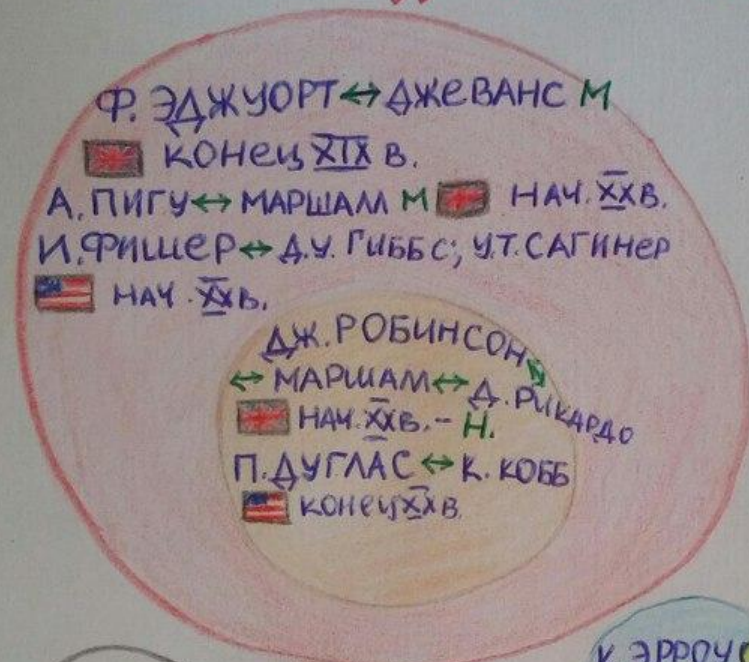 Ф. ЭДЖУОРТ ↔ ДЖЕВАНС М
КОНЕЦ XIX В.
А. ПИГУ ↔ МАРШАЛЛ М НАЧ. XX В.
И. ФИШЕР ↔ Д.У. ГИББС; У.Т. САГИНЕР
НАЧ. XX В.
ДЖ. РОБИНСОН ↔
↔ МАРШАЛЛ ↔ Д. РИКАРДО
НАЧ. XX В. - Н.
П. ДУГЛАС ↔ К. КОББ
КОНЕЦ XX В.
К. ЭРРОУ